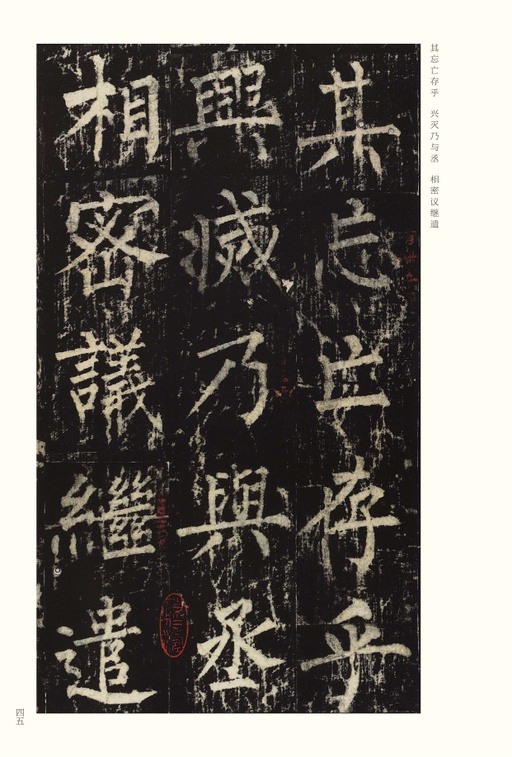 其忘亡存乎 兴灭乃与丞 相密议继遣
其忘亡存乎
興滅乃與丞
相密議繼遣
四五